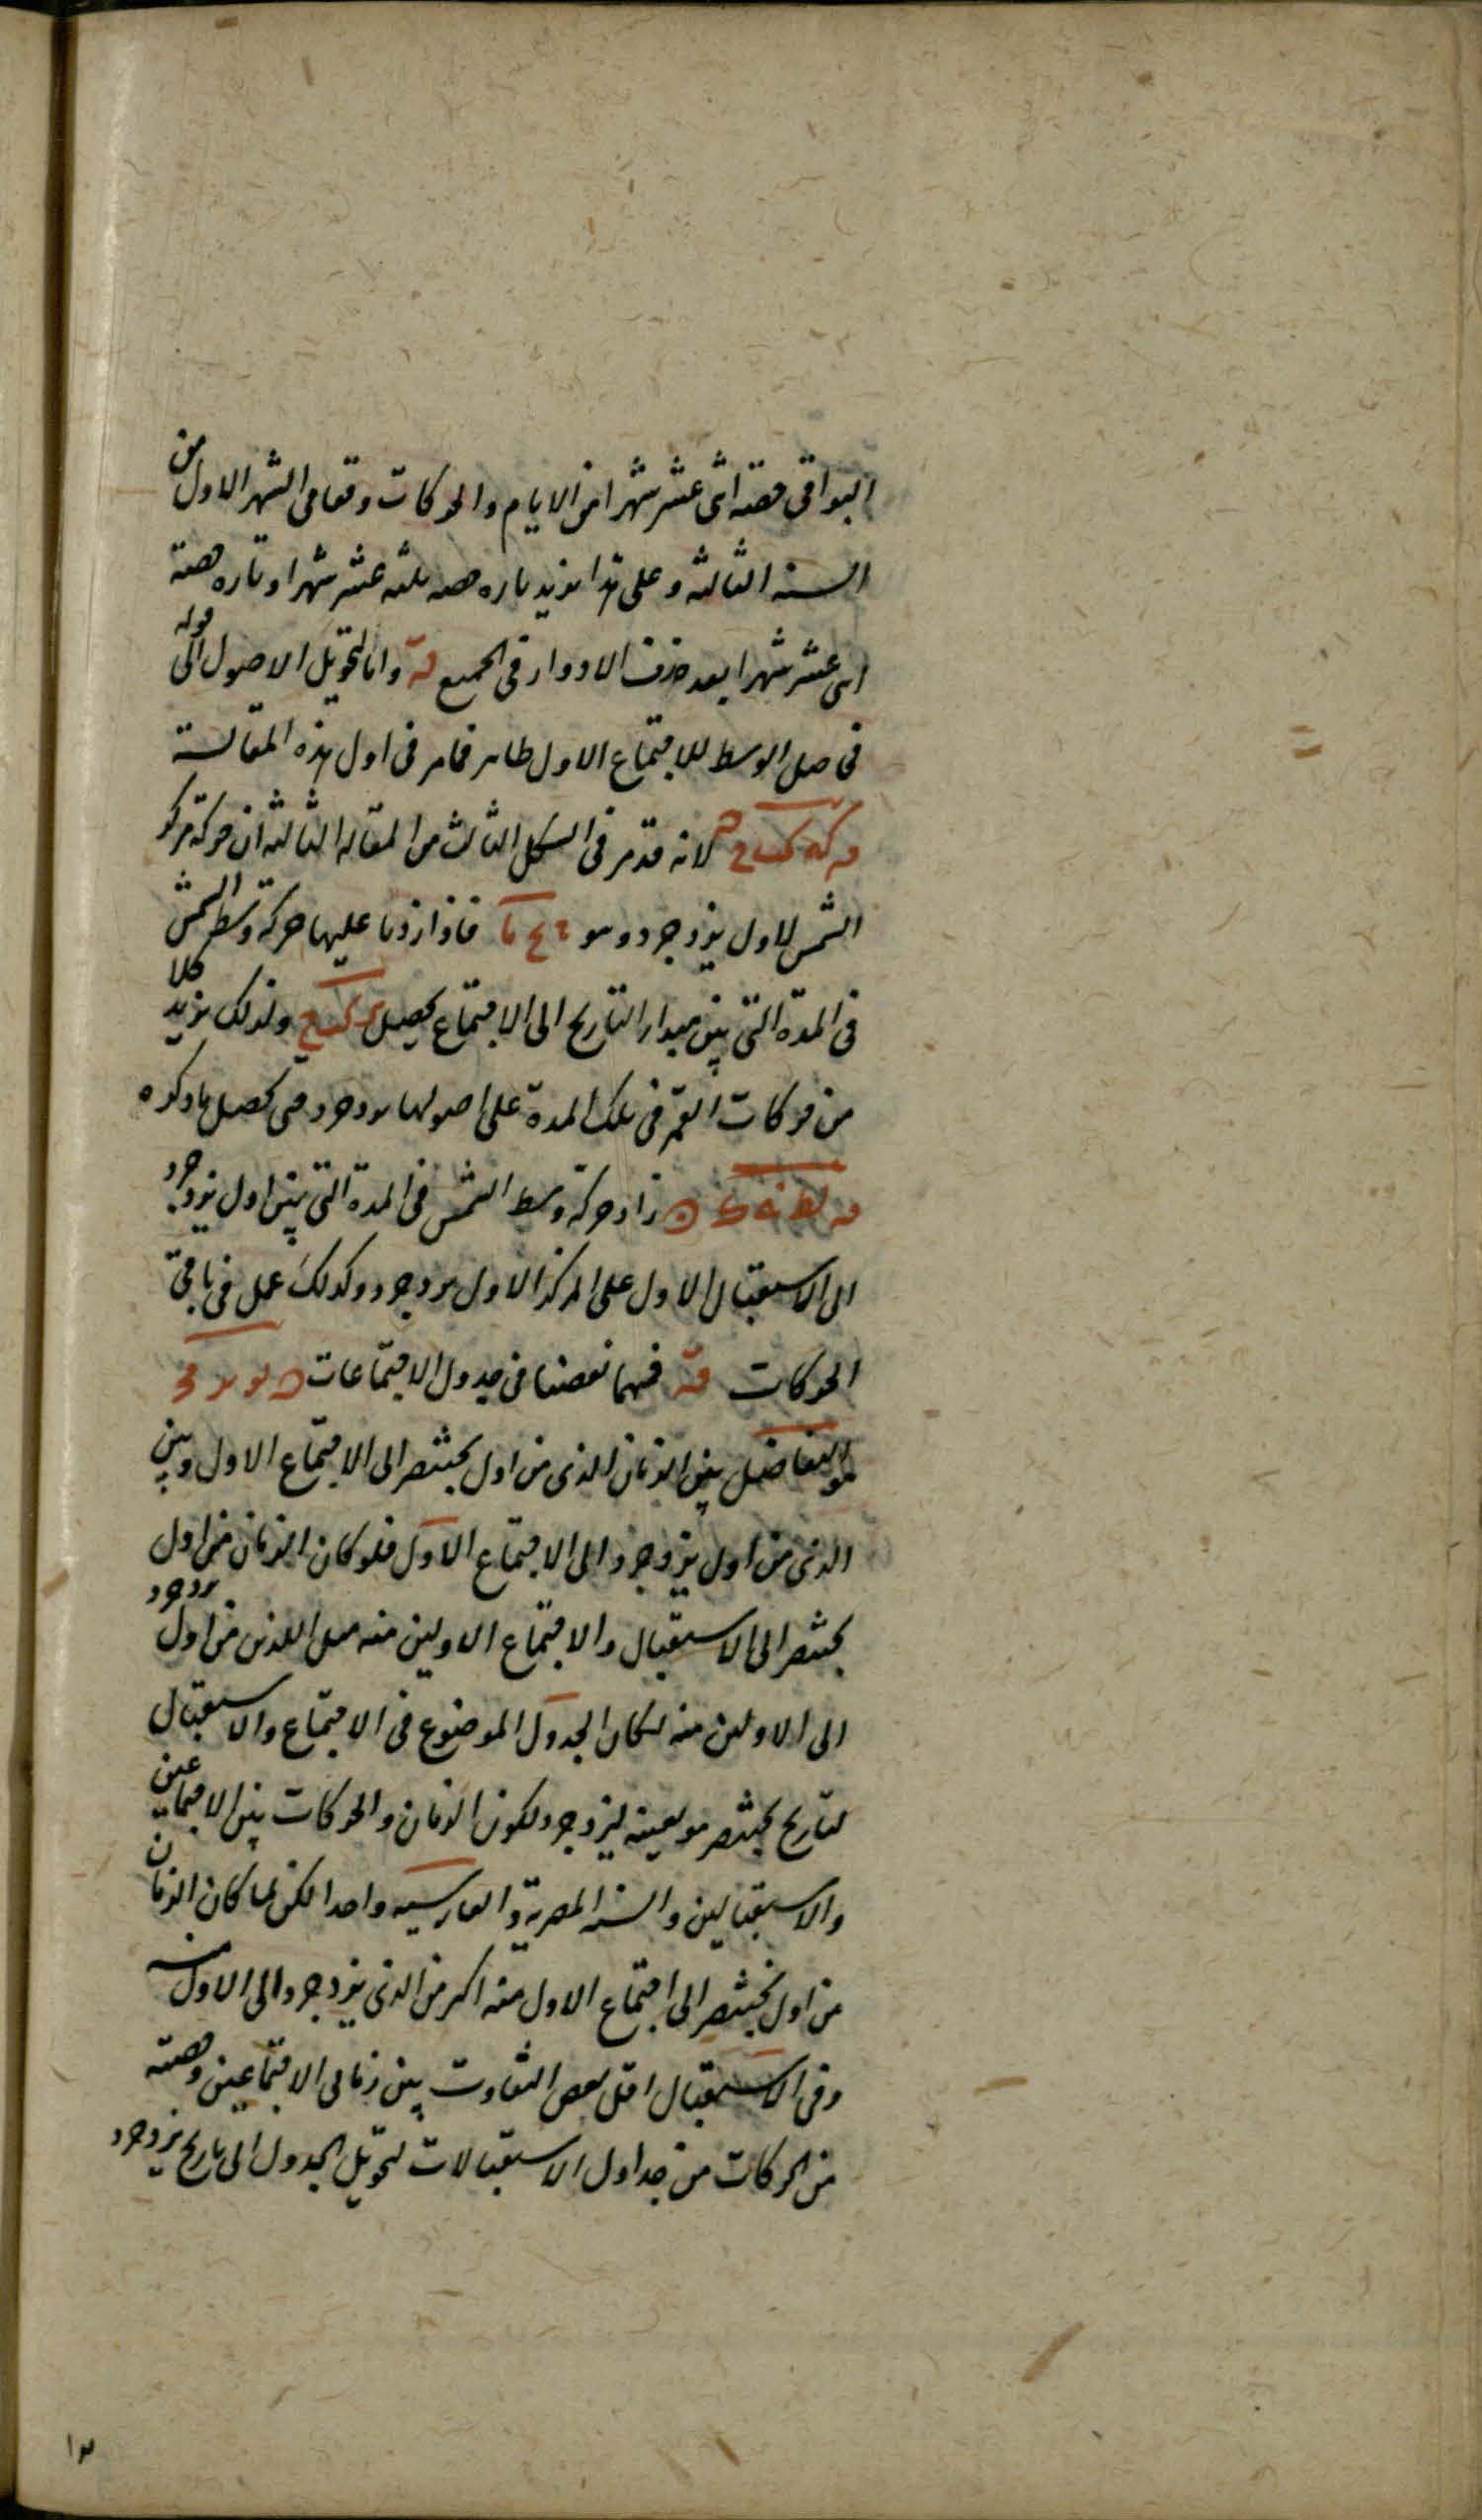 البواقى حصة اثنى عشر شهرا من الايام والحركات وقعا فى الشهر الاول من
السنه الثالثه وعلى هذا نزيد تاره حصه ثلثه عشر شهرا وتاره حصة
اثنى عشر شهرا بعد حذف الادوار فى الجميع قه واما لتحويل الاصول الى قوله
فى صل الوسط للاجتماع الاول ظاهر فمامر فى اول هذه المقالة
لانه قد مر فى الشكل الثالث من المقاله الثالثه ان حركة مركز
الشمس لاول يزدجرد وهو فاذا زدنا عليها حركة وسط الشمس
فى المدة التى بين مبدا التاريخ الى الاجتماع يحصل ولذلك نزيد كلا
من حركات القمر فى تلك المدة على اصولها يزدجرد حتى يحصل ما ذكره
زاد حركة وسط الشمس فى المدة التى بين اول يزدجرد
الى الاستقبال الاول على المركز الاول يزدجرد وكذلك عمل فى باقى
الحركات قه فهما نقصنا فى جدول الاجتماعات
هو التفاضل بين الزمان الذى من اول بختنصر الى الاجتماع الاول وبين
الذى من اول يزدجرد الى الاجتماع الاول فلو كان الزمان من اول
بختنصر الى الاستقبال والاجتماع الاولين منه مثل اللذين من اول يزدجرد
الى الاولين منه لكان الجدول الموضوع فى الاجتماع والاستقبال
لتاريخ بختنصر هو بعينه ليزدجرد لكون الزمان والحركات بين الاجتماعين
والاستقبالين والسنه المصرية والفارسيه واحدا لكن لما كان الزمان
من اول بختنصر الى اجتماع الاول منه اكثر من الذى يزدجرد الى الاول منه
وفى الاستقبال اقل نقص التفاوت بين زمانى الاجتماعين وحصته
من الحركات من جداول الاستقبالات لتحويل الجدول الى تاريخ يزدجرد